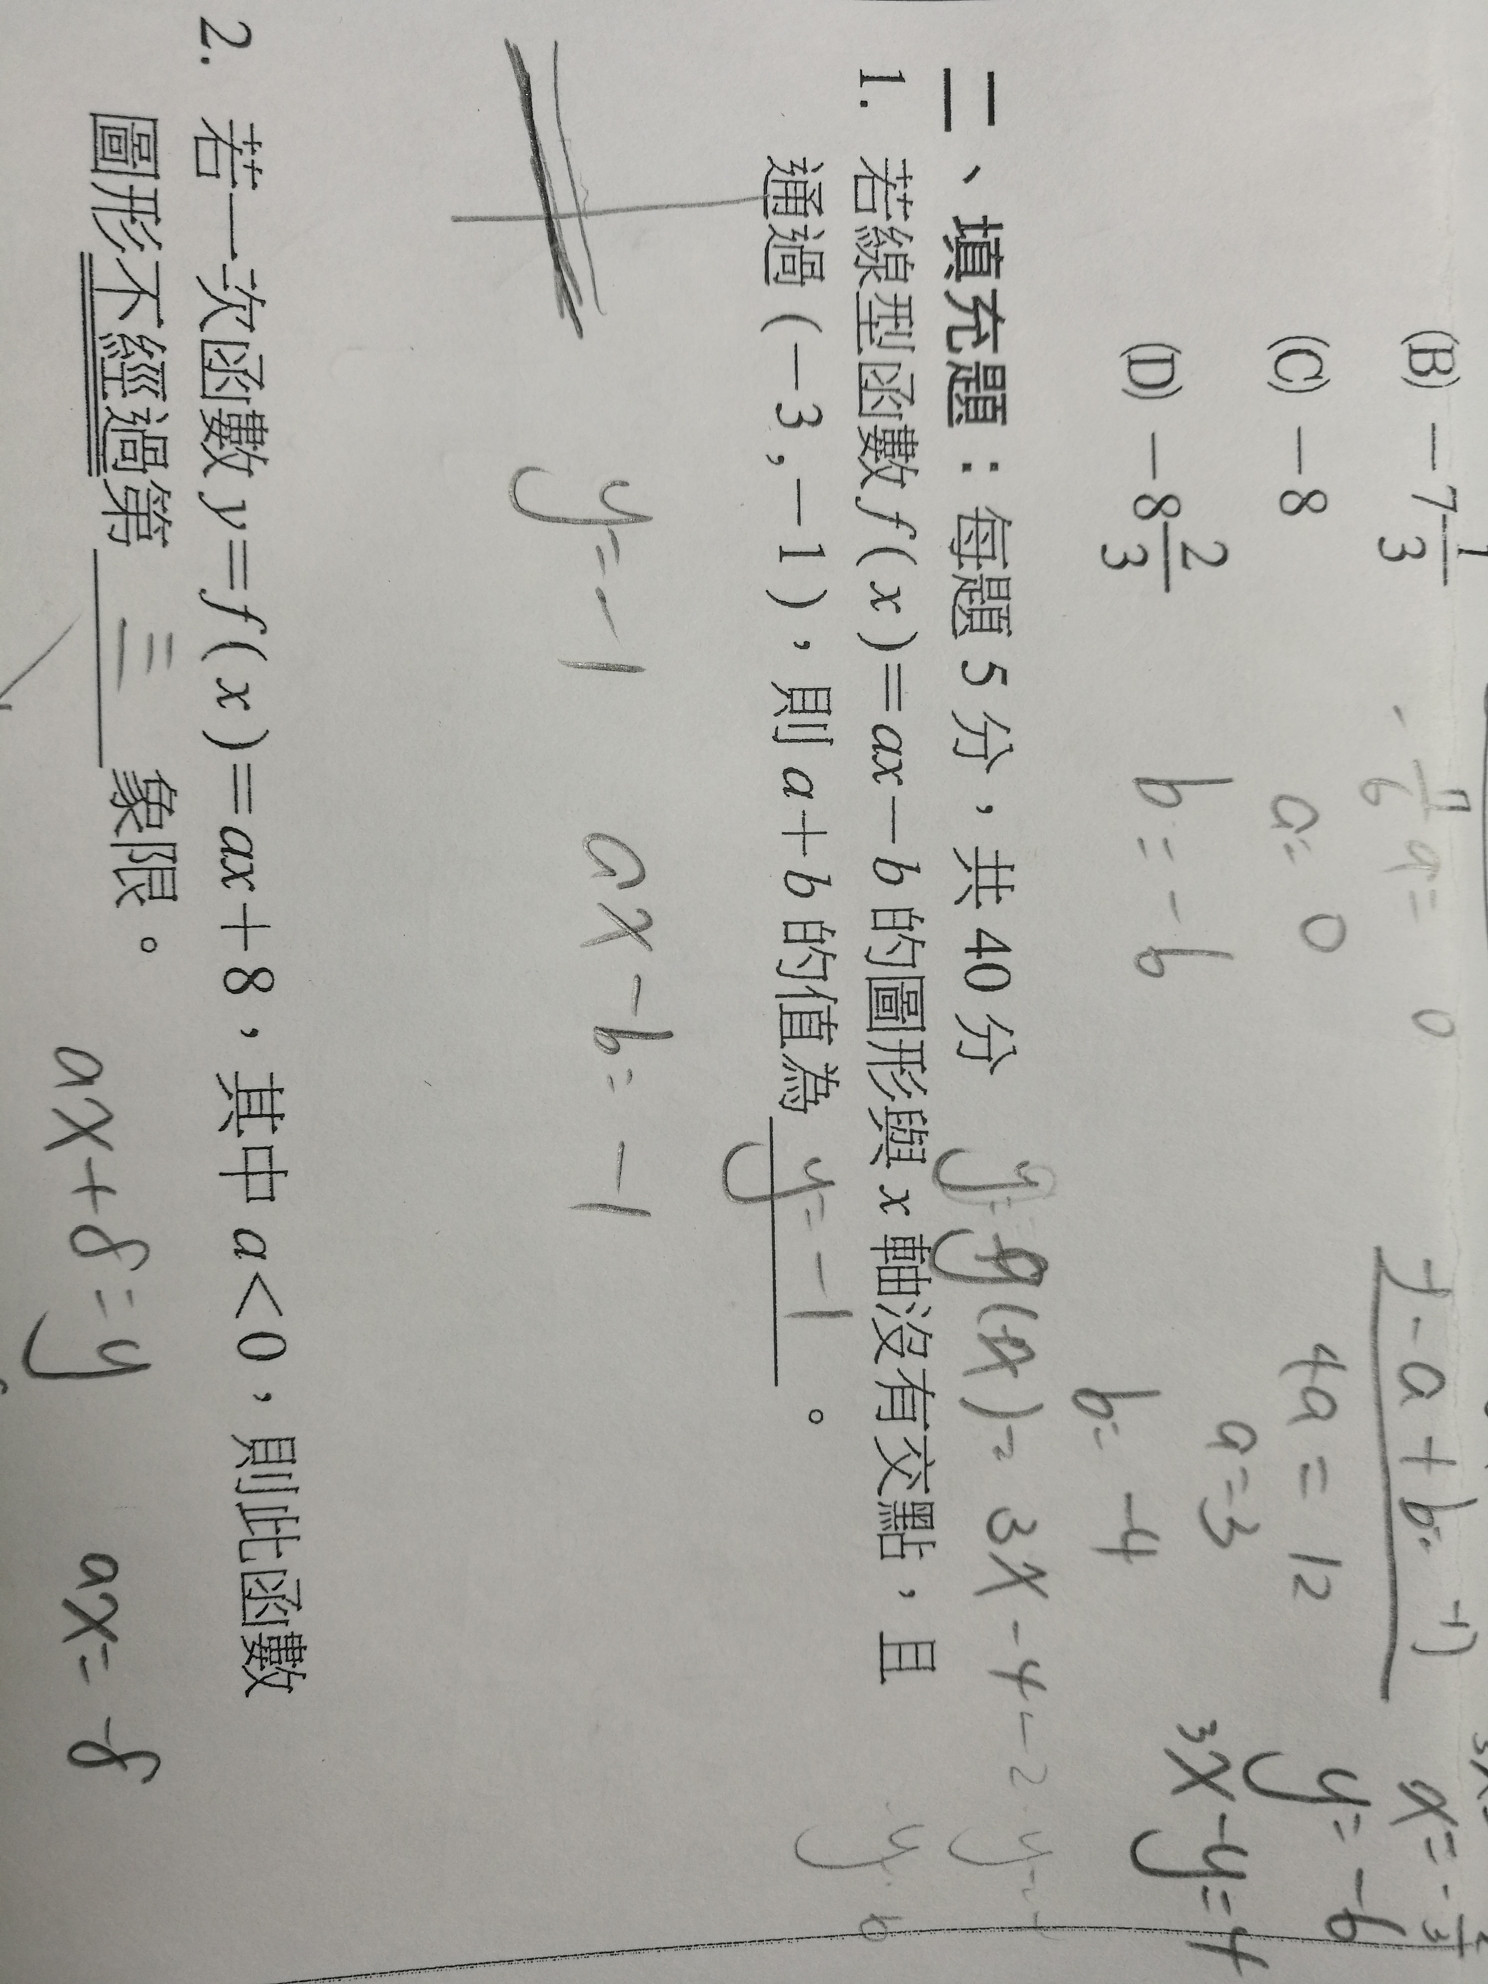 (B) －7 1/3
(C) －8
(D) －8 2/3
a= 0
b = -6
-a + b= -1)
4a = 12
a=3
b= -4
y= -6
3x-y=4
二、填充題：每題 5 分，共 40 分
(x)= 3x-4
1. 若線型函數 f ( x )＝ax－b 的圖形與 x 軸沒有交點，且
通過 (－3 ,－1 )，則 a＋b 的值為 y= -1 。
y= -1 ax-b= -1
2. 若一次函數 y＝f ( x )＝ax＋8，其中 a＜0，則此函數
圖形不經過第 三 象限。
ax+8=y ax= -8